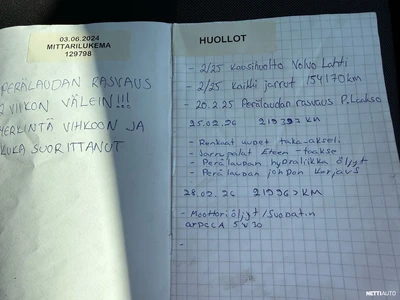 03.06.2024
MITTARILUKEMA
129798
PERÄLAUDAN RASVAUS
2 VIIKON VÄLEIN!!!
MERKINTÄ VIHKOON JA
KUKA SUORITTANUT
HUOLLOT
- 2/25 Kausihuolto Volvo Lahti
- 2/25 Kaikki jarrut 154170km
- 20.2.25 Perälaudan rasvaus P.Laakso
25.02.26 219393 KM
- Renkaat uudet taka-akseli
- Jarrupalat Eteen - taakse
- Perälaudan hydraliikka öljyt
- Perälaudan johdon korjaus
28.02.26 219967 KM
- Moottoriöljyt/Suodatin
5W30
-
NETTIAUTO